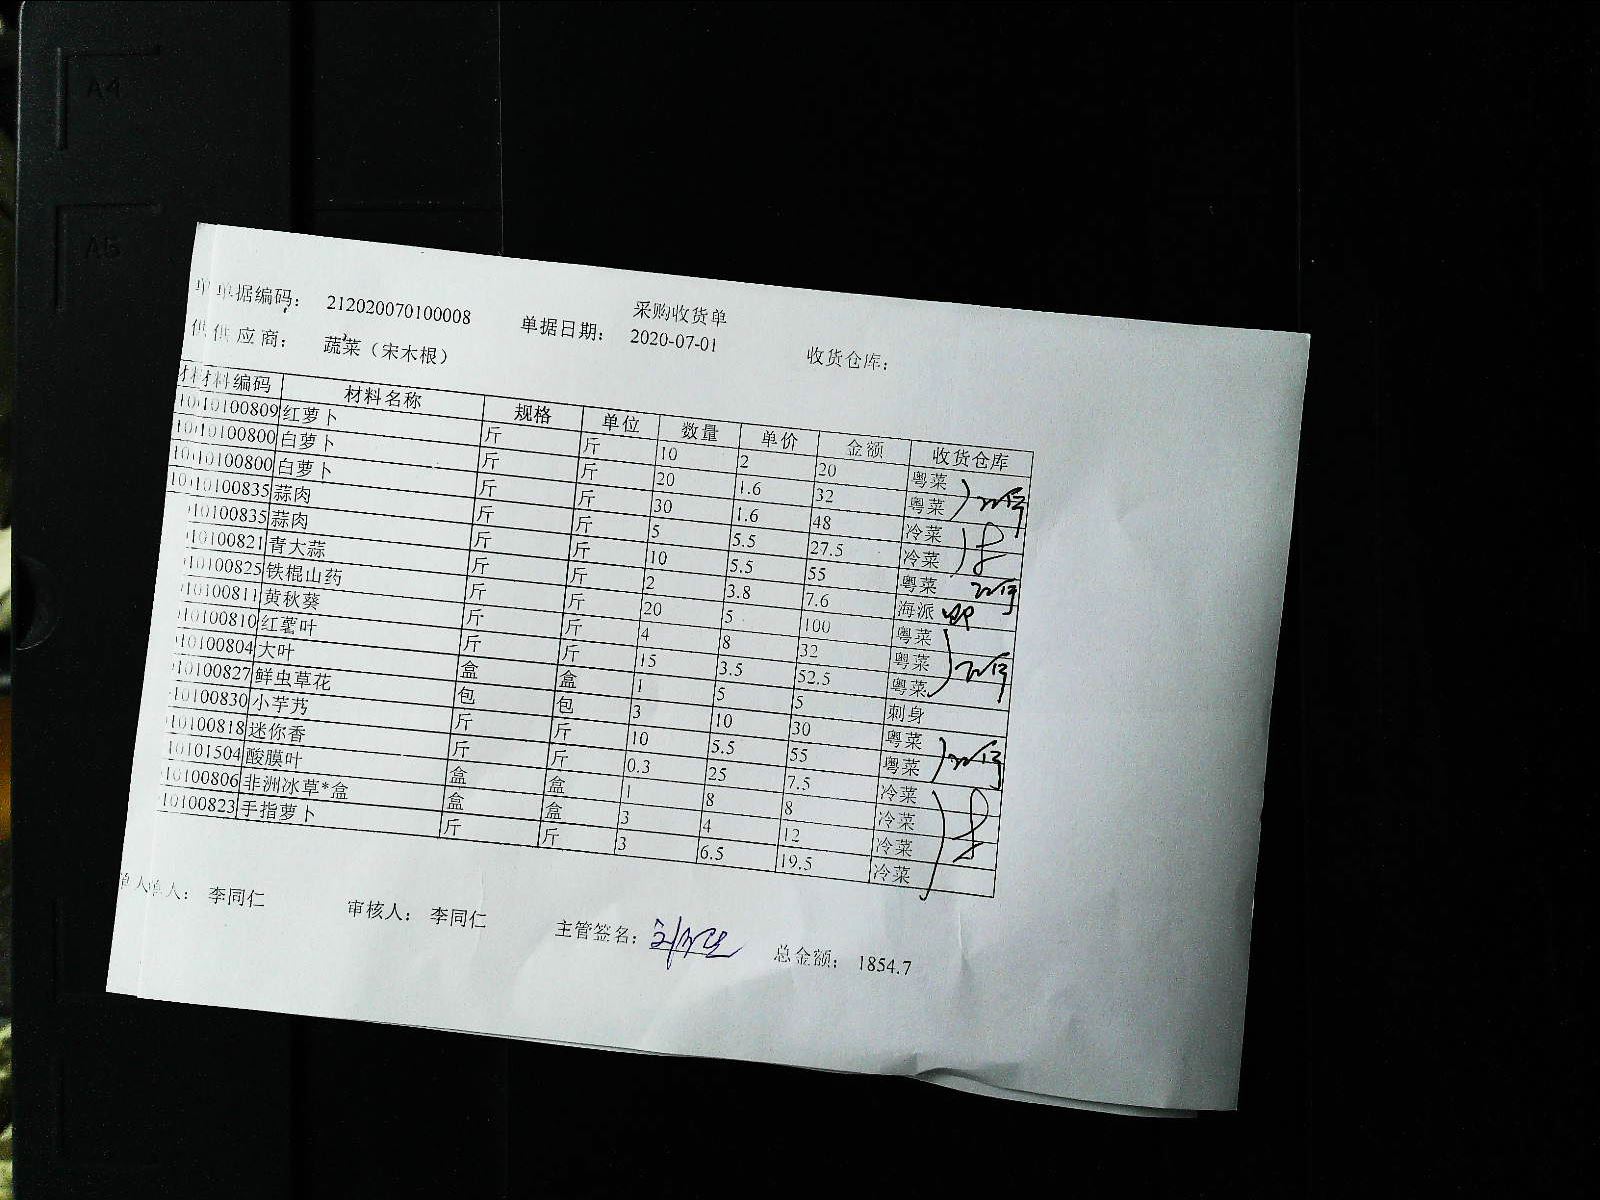 采购收货单
单据编码： 212020070100008 单据日期： 2020-07-01 收货仓库：
供应商： 蔬菜（宋木根）
材料编码 材料名称 规格 单位 数量 单价 金额 收货仓库
10100809 红萝卜 斤 斤 10 2 20 粤菜
10100800 白萝卜 斤 斤 20 1.6 32 粤菜
10100800 白萝卜 斤 斤 30 1.6 48 冷菜
10100835 蒜肉 斤 斤 5 5.5 27.5 冷菜
10100835 蒜肉 斤 斤 10 5.5 55 粤菜
10100821 青大蒜 斤 斤 2 3.8 7.6 海派
10100825 铁棍山药 斤 斤 20 5 100 粤菜
10100811 黄秋葵 斤 斤 4 8 32 粤菜
10100810 红薯叶 斤 斤 15 3.5 52.5 粤菜
10100804 大叶 盒 盒 1 5 5 刺身
10100827 鲜虫草花 包 包 3 10 30 粤菜
10100830 小芋艿 斤 斤 10 5.5 55 粤菜
10100818 迷你香 斤 斤 0.3 25 7.5 冷菜
10101504 酸膜叶 盒 盒 1 8 8 冷菜
10100806 非洲冰草*盒 盒 盒 3 4 12 冷菜
10100823 手指萝卜 斤 斤 3 6.5 19.5 冷菜
单人： 李同仁 审核人： 李同仁 主管签名： 总金额： 1854.7